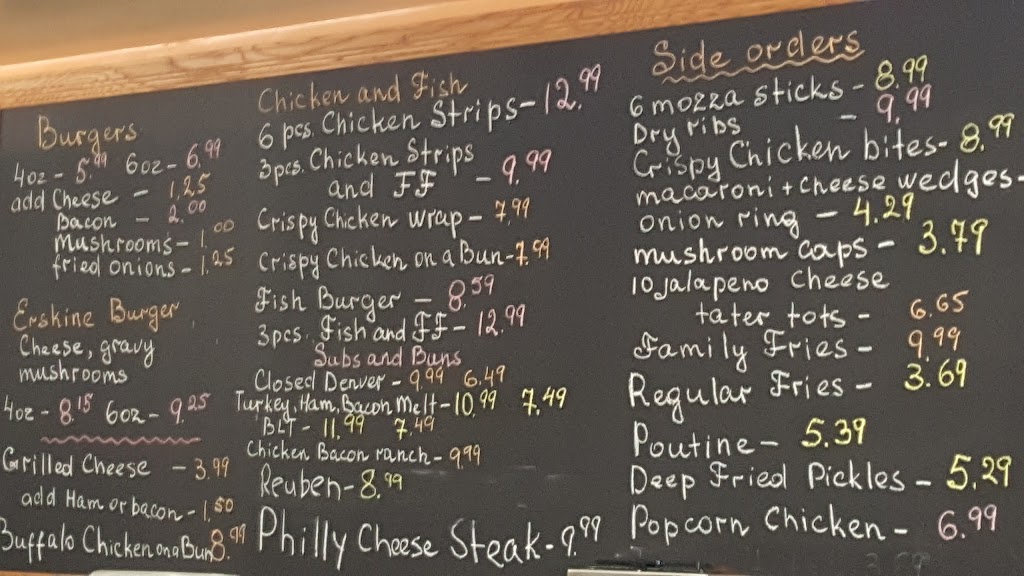 Burgers
4oz - 5.99 6oz - 6.99
add Cheese - 1.25
Bacon - 2.00
Mushrooms - 1.00
fried onions - 1.25
Erskine Burger
Cheese, gravy
mushrooms
4oz - 8.15 6oz - 9.25
Grilled Cheese - 3.99
add Ham or bacon - 1.50
Buffalo Chicken on a Bun 8.99
Chicken and Fish
6 pcs. Chicken Strips - 12.99
3pcs. Chicken Strips
and FF - 9.99
Crispy Chicken wrap - 7.99
Crispy Chicken on a Bun - 7.99
Fish Burger - 8.59
3pcs. Fish and FF - 12.99
Subs and Buns
Closed Denver - 9.99 6.49
Turkey, Ham, Bacon Melt - 10.99 7.49
BLT - 11.99 7.49
Chicken Bacon ranch - 9.99
Reuben - 8.99
Philly Cheese Steak - 9.99
Side orders
6 mozza sticks - 8.99
Dry ribs - 9.99
Crispy Chicken bites - 8.99
macaroni + cheese wedges -
onion ring - 4.29
mushroom caps - 3.79
10 jalapeno cheese
tater tots - 6.65
Family Fries - 9.99
Regular Fries - 3.69
Poutine - 5.39
Deep Fried Pickles - 5.29
Popcorn Chicken - 6.99